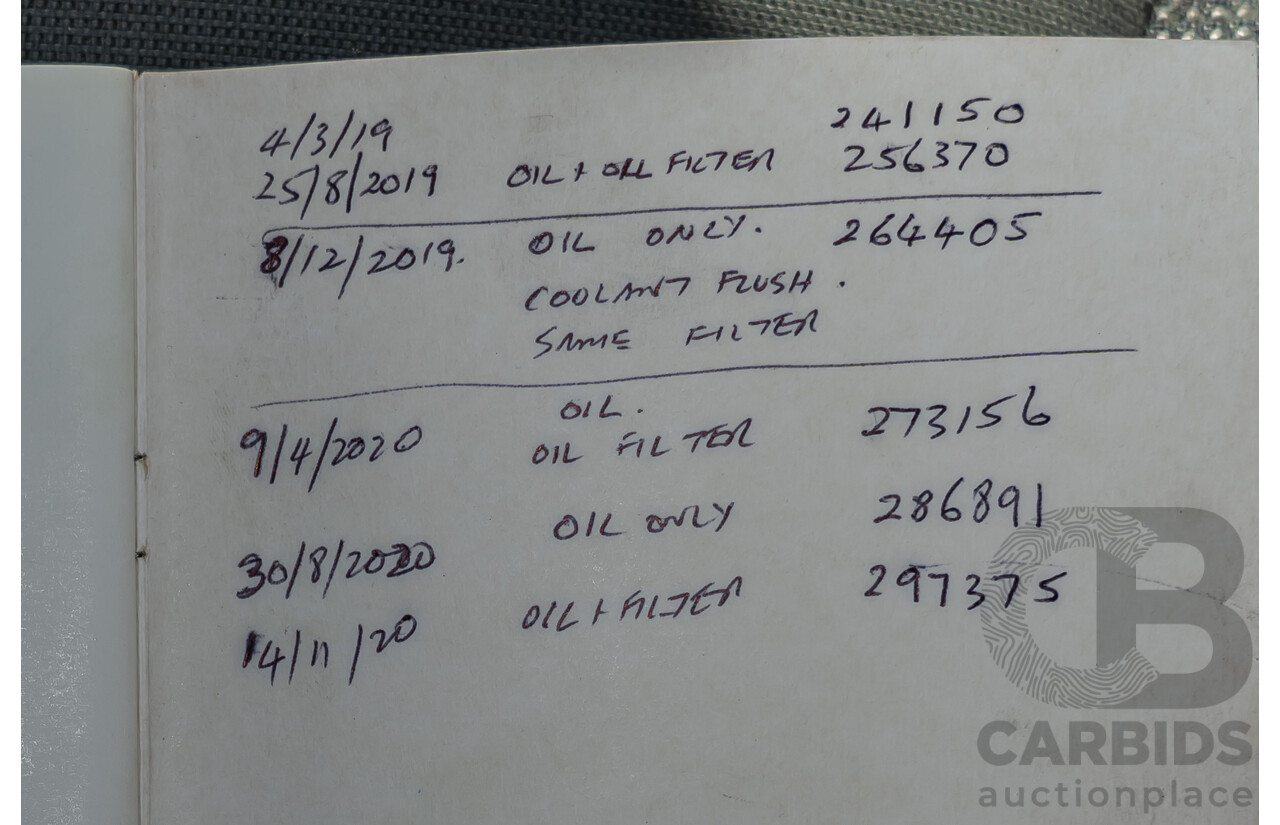 4/3/19 241150
25/8/2019 OIL + OIL FILTER 256370
8/12/2019. OIL ONLY. 264405
COOLANT FLUSH.
SAME FILTER
OIL.
9/4/2020 OIL FILTER 273156
30/8/2020 OIL ONLY 286891
14/11/20 OIL + FILTER 297375
CB
CARBIDS
auctionplace